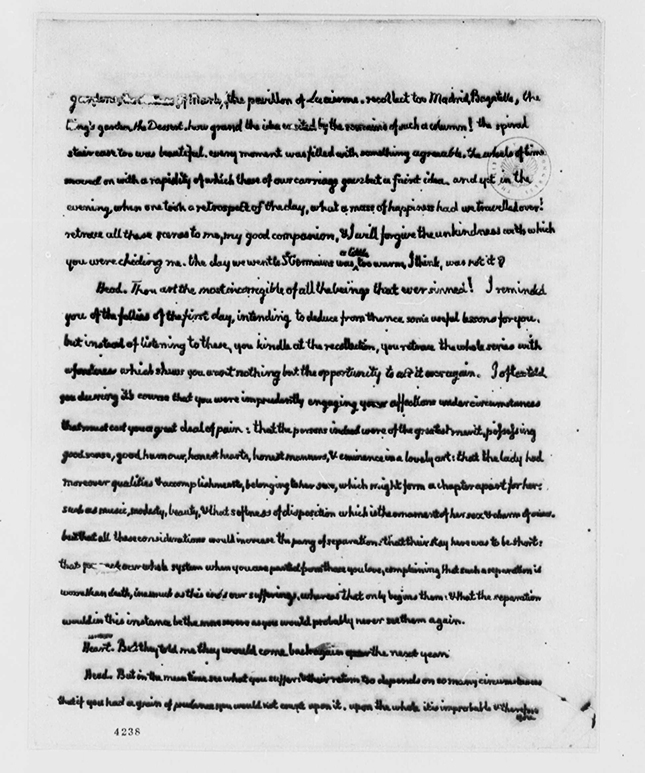 gardens, the of Marli, the pavillon of Lucienne. recollect too Madrid, Bagatelle, the
King's garden, the Dessert. how grand the idea excited by the remains of such a column! the spiral
staircase too was beautiful. every moment was filled with something agreeable. the wheels of time
moved on with a rapidity of which those of our carriage gave but a faint idea. and yet in the
evening, when one took a retrospect of the day, what a mass of happiness had we travelled over!
retrace all those scenes to me, my good companion, & I will forgive the unkindness with which
you were chiding me. the day we went to St Germains was a little too warm, I think, was not it?
Head. Thou art the most incorrigible of all the beings that ever sinned! I reminded
you of the follies of the first day, intending to deduce from thence some useful lessons for you.
but instead of listening to these, you kindle at the recollection, you retrace the whole series with
a fondness which shews you want nothing but the opportunity to act it over again. I often told
you during it's course that you were imprudently engaging your affections under circumstances
that must cost you a great deal of pain: that the persons indeed were of the greatest merit, possessing
good sense, good humour, honest hearts, honest manners, & eminence in a lovely art: that the lady had
moreover qualities & accomplishments, belonging to her sex, which might form a chapter apart for her:
such as music, modesty, beauty, & that softness of disposition which is the ornament of her sex & charm of ours.
but that all these considerations would increase the pang of separation: that their stay here was to be short:
that you our whole system when you are parted from those you love, complaining that such a separation is
worse than death, inasmuch as this ends our sufferings, whereas that only begins them: & that the separation
would in this instance be the more severe as you would probably never see them again.
Heart. But they told me they would come back again the next year.
Head. But in the mean time see what you suffer: & their return too depends on so many circumstances
that if you had a grain of prudence you would not count upon it. upon the whole it is improbable & therefore
4238